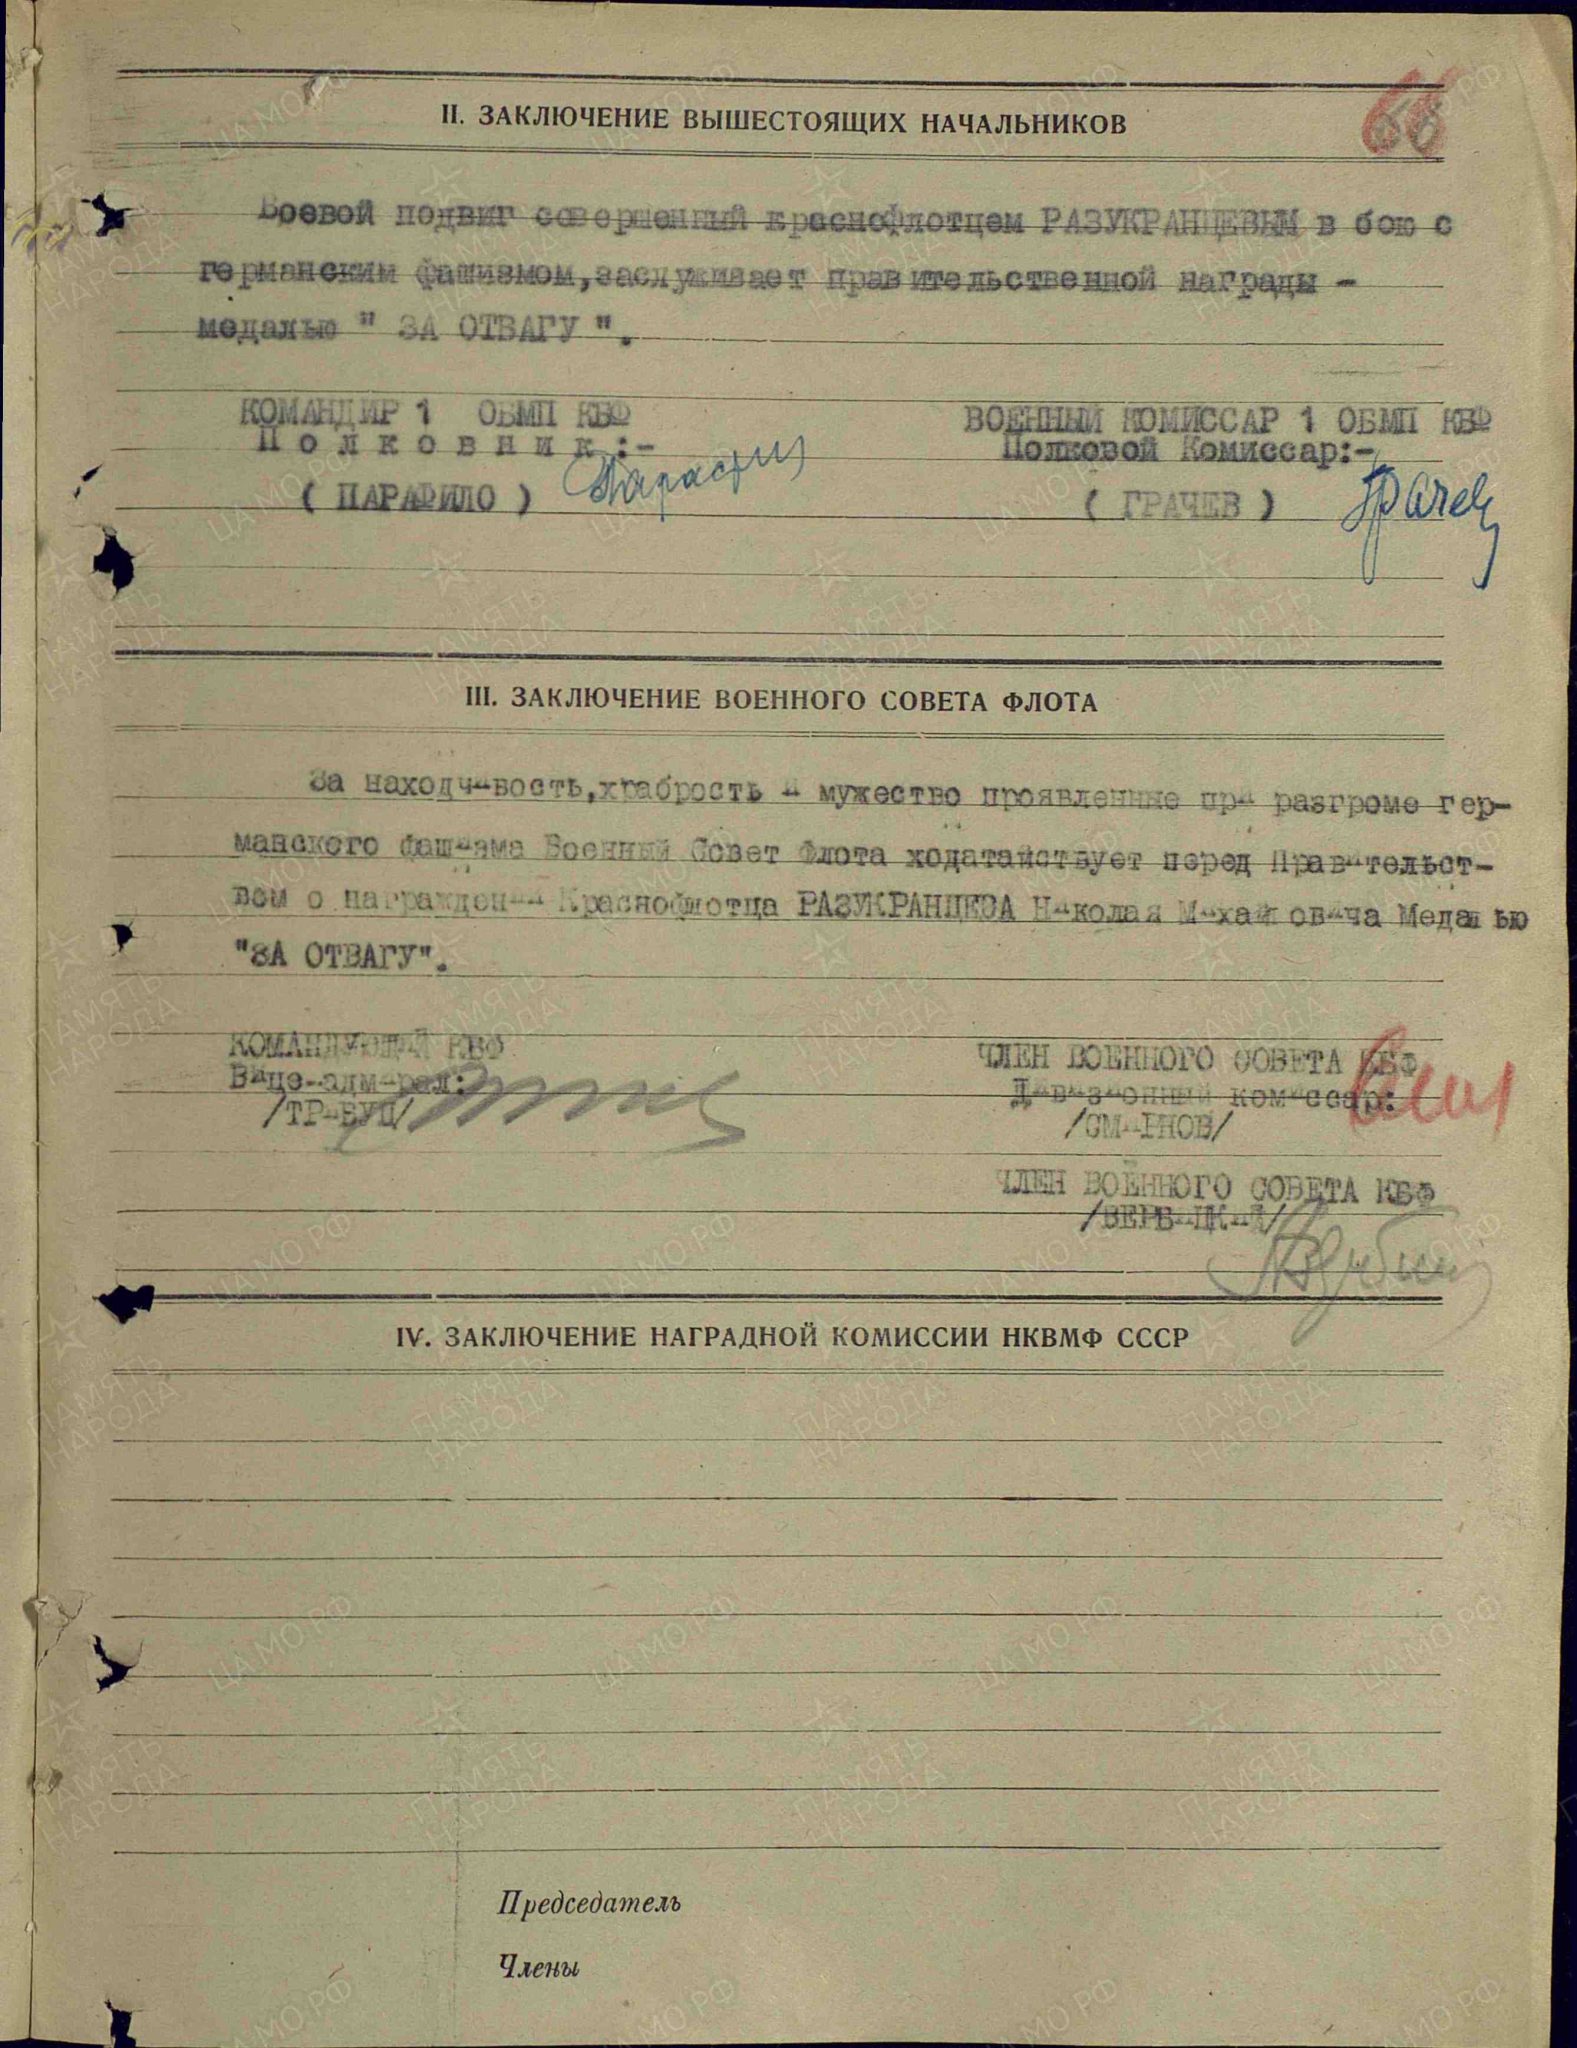 66
II. ЗАКЛЮЧЕНИЕ ВЫШЕСТОЯЩИХ НАЧАЛЬНИКОВ
Боевой подвиг совершенный краснофлотцем РАЗУКРАНЦЕВЫМ в бою с
германским фашизмом, заслуживает правительственной награды -
медалью " ЗА ОТВАГУ ".
КОМАНДИР 1 ОБМП КБФ
Полковник:-
( ПАРАФИЛО )
ВОЕННЫЙ КОМИССАР 1 ОБМП КБФ
Полковой Комиссар:-
( ГРАЧЕВ ) Грачев
III. ЗАКЛЮЧЕНИЕ ВОЕННОГО СОВЕТА ФЛОТА
За находчивость, храбрость и мужество проявленные при разгроме гер-
манского фашизма Военный Совет Флота ходатайствует перед Правительст-
вом о награждении Краснофлотца РАЗУКРАНЦЕВА Николая Михайловича Медалью
"ЗА ОТВАГУ".
КОМАНДУЮЩИЙ КБФ
Вице-адмирал:
/ТРИБУЦ/
ЧЛЕН ВОЕННОГО СОВЕТА КБФ
Дивизионный комиссар:
/СМИРНОВ/
ЧЛЕН ВОЕННОГО СОВЕТА КБФ
/ВЕРБИЦКИЙ/
IV. ЗАКЛЮЧЕНИЕ НАГРАДНОЙ КОМИССИИ НКВМФ СССР
Председатель
Члены